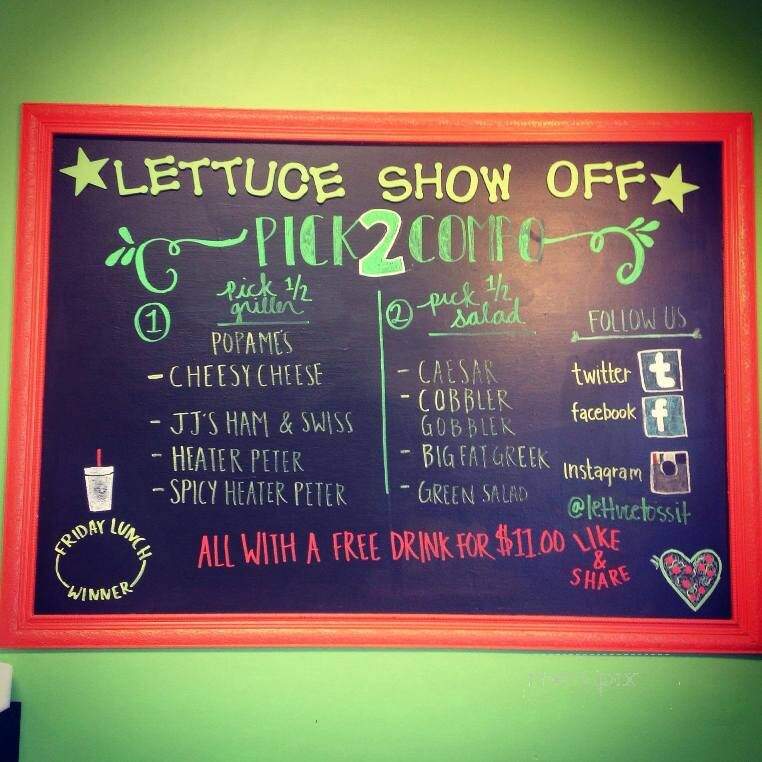 LETTUCE SHOW OFF
PICK 2 COMBO
1
pick 1/2
griller
POPAME'S
- CHEESY CHEESE
- JJ'S HAM & SWISS
- HEATER PETER
- SPICY HEATER PETER
2
pick 1/2
salad
- CAESAR
- COBBLER
GOBBLER
- BIG FAT GREEK
- GREEN SALAD
FOLLOW US
twitter t
facebook f
instagram
@lettucetossit
FRIDAY LUNCH
WINNER
ALL WITH A FREE DRINK FOR $11.00
LIKE
&
SHARE